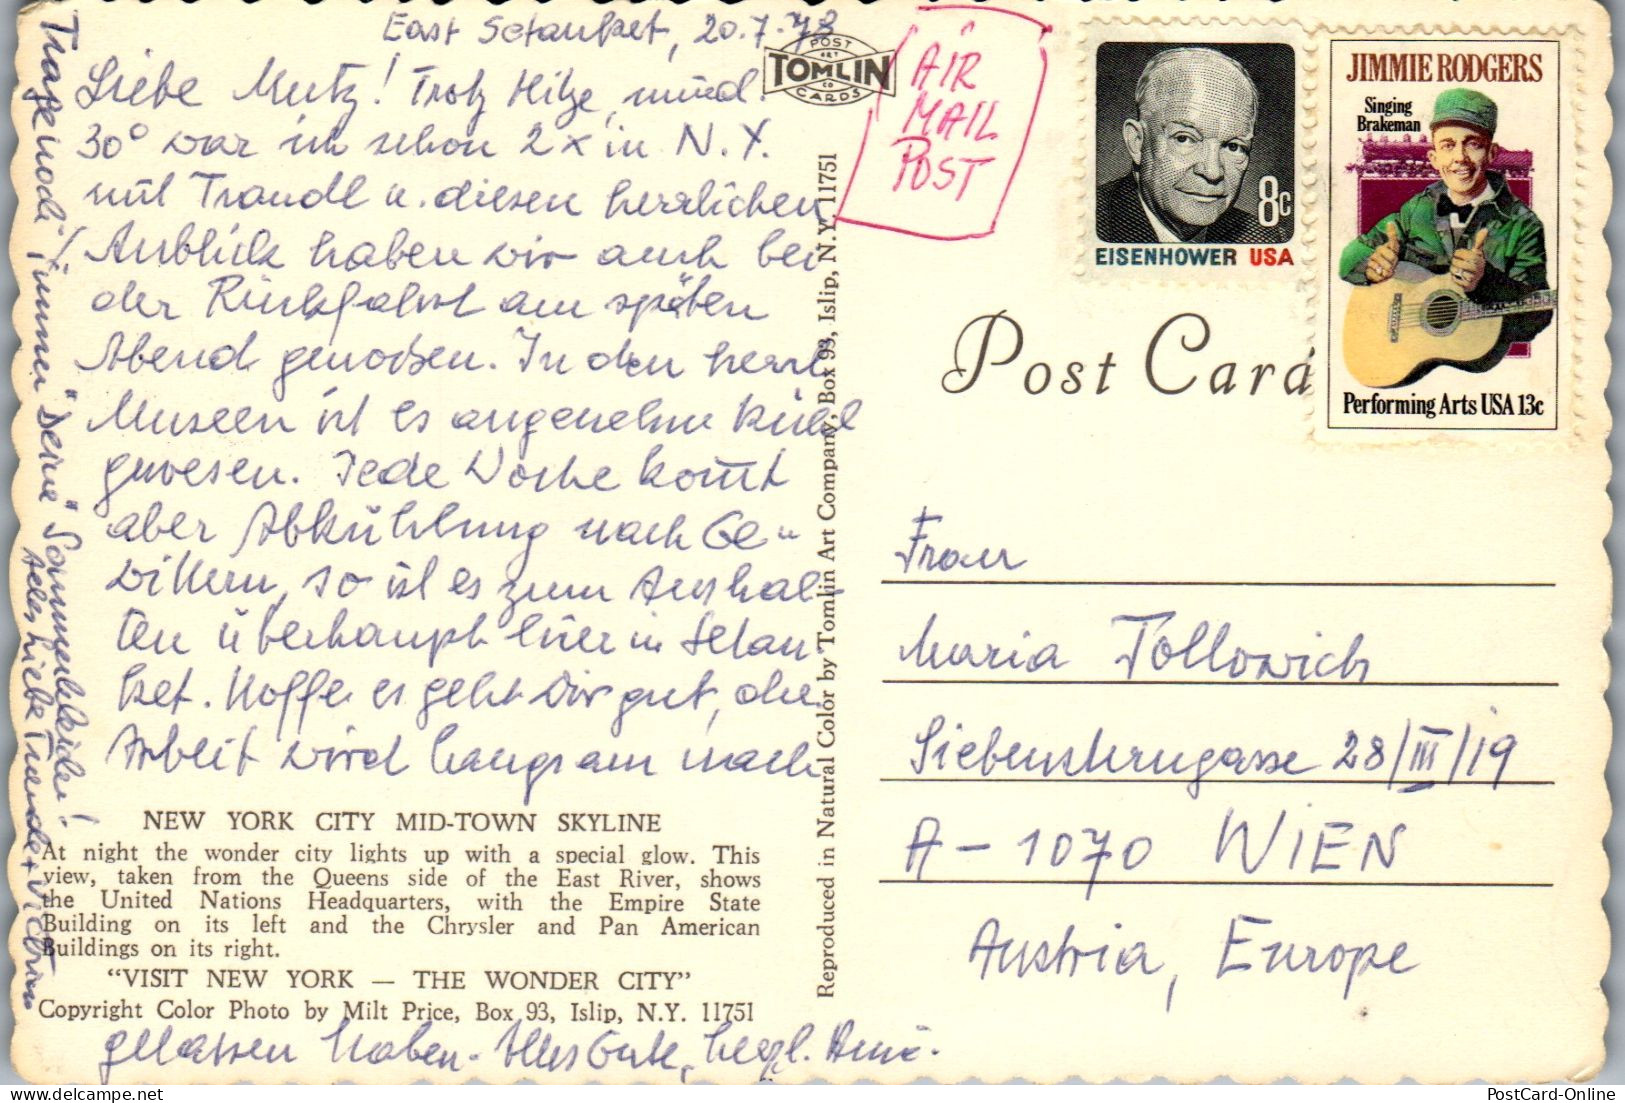 East Setauket, 20.7.78
Liebe Mutz! Trotz Hitze, mind.
30° war ich schon 2x in N.Y.
mit Traudl u. diesen herrlichen
Anblick haben wir auch bei
der Rückfahrt am späten
Abend genossen. In den herrl.
Museen ist es angenehm kühl
gewesen. Jede Woche kommt
aber Abkühlung nach Ge-
wittern, so ist es zum Aushal-
ten überhaupt hier in Setau-
ket. Hoffe es geht Dir gut, die
Arbeit wird langsam nach
gelassen haben. Alles Gute, herzl.
Trage noch immer "Deine" Sommerkleider!
Alles Liebe Traude + Viktor
AIR
MAIL
POST
POST
ART
TOMLIN
CO
CARDS
8c
EISENHOWER USA
JIMMIE RODGERS
Singing
Brakeman
Performing Arts USA 13c
Post Card
Frau
Maria Tollowich
Siebensterngasse 28/III/19
A-1070 WIEN
Austria, Europe
Reproduced in Natural Color by Tomlin Art Company, Box 93, Islip, N.Y. 11751
NEW YORK CITY MID-TOWN SKYLINE
At night the wonder city lights up with a special glow. This
view, taken from the Queens side of the East River, shows
the United Nations Headquarters, with the Empire State
Building on its left and the Chrysler and Pan American
Buildings on its right.
"VISIT NEW YORK — THE WONDER CITY"
Copyright Color Photo by Milt Price, Box 93, Islip, N.Y. 11751
delcampe.net
PostCard-Online